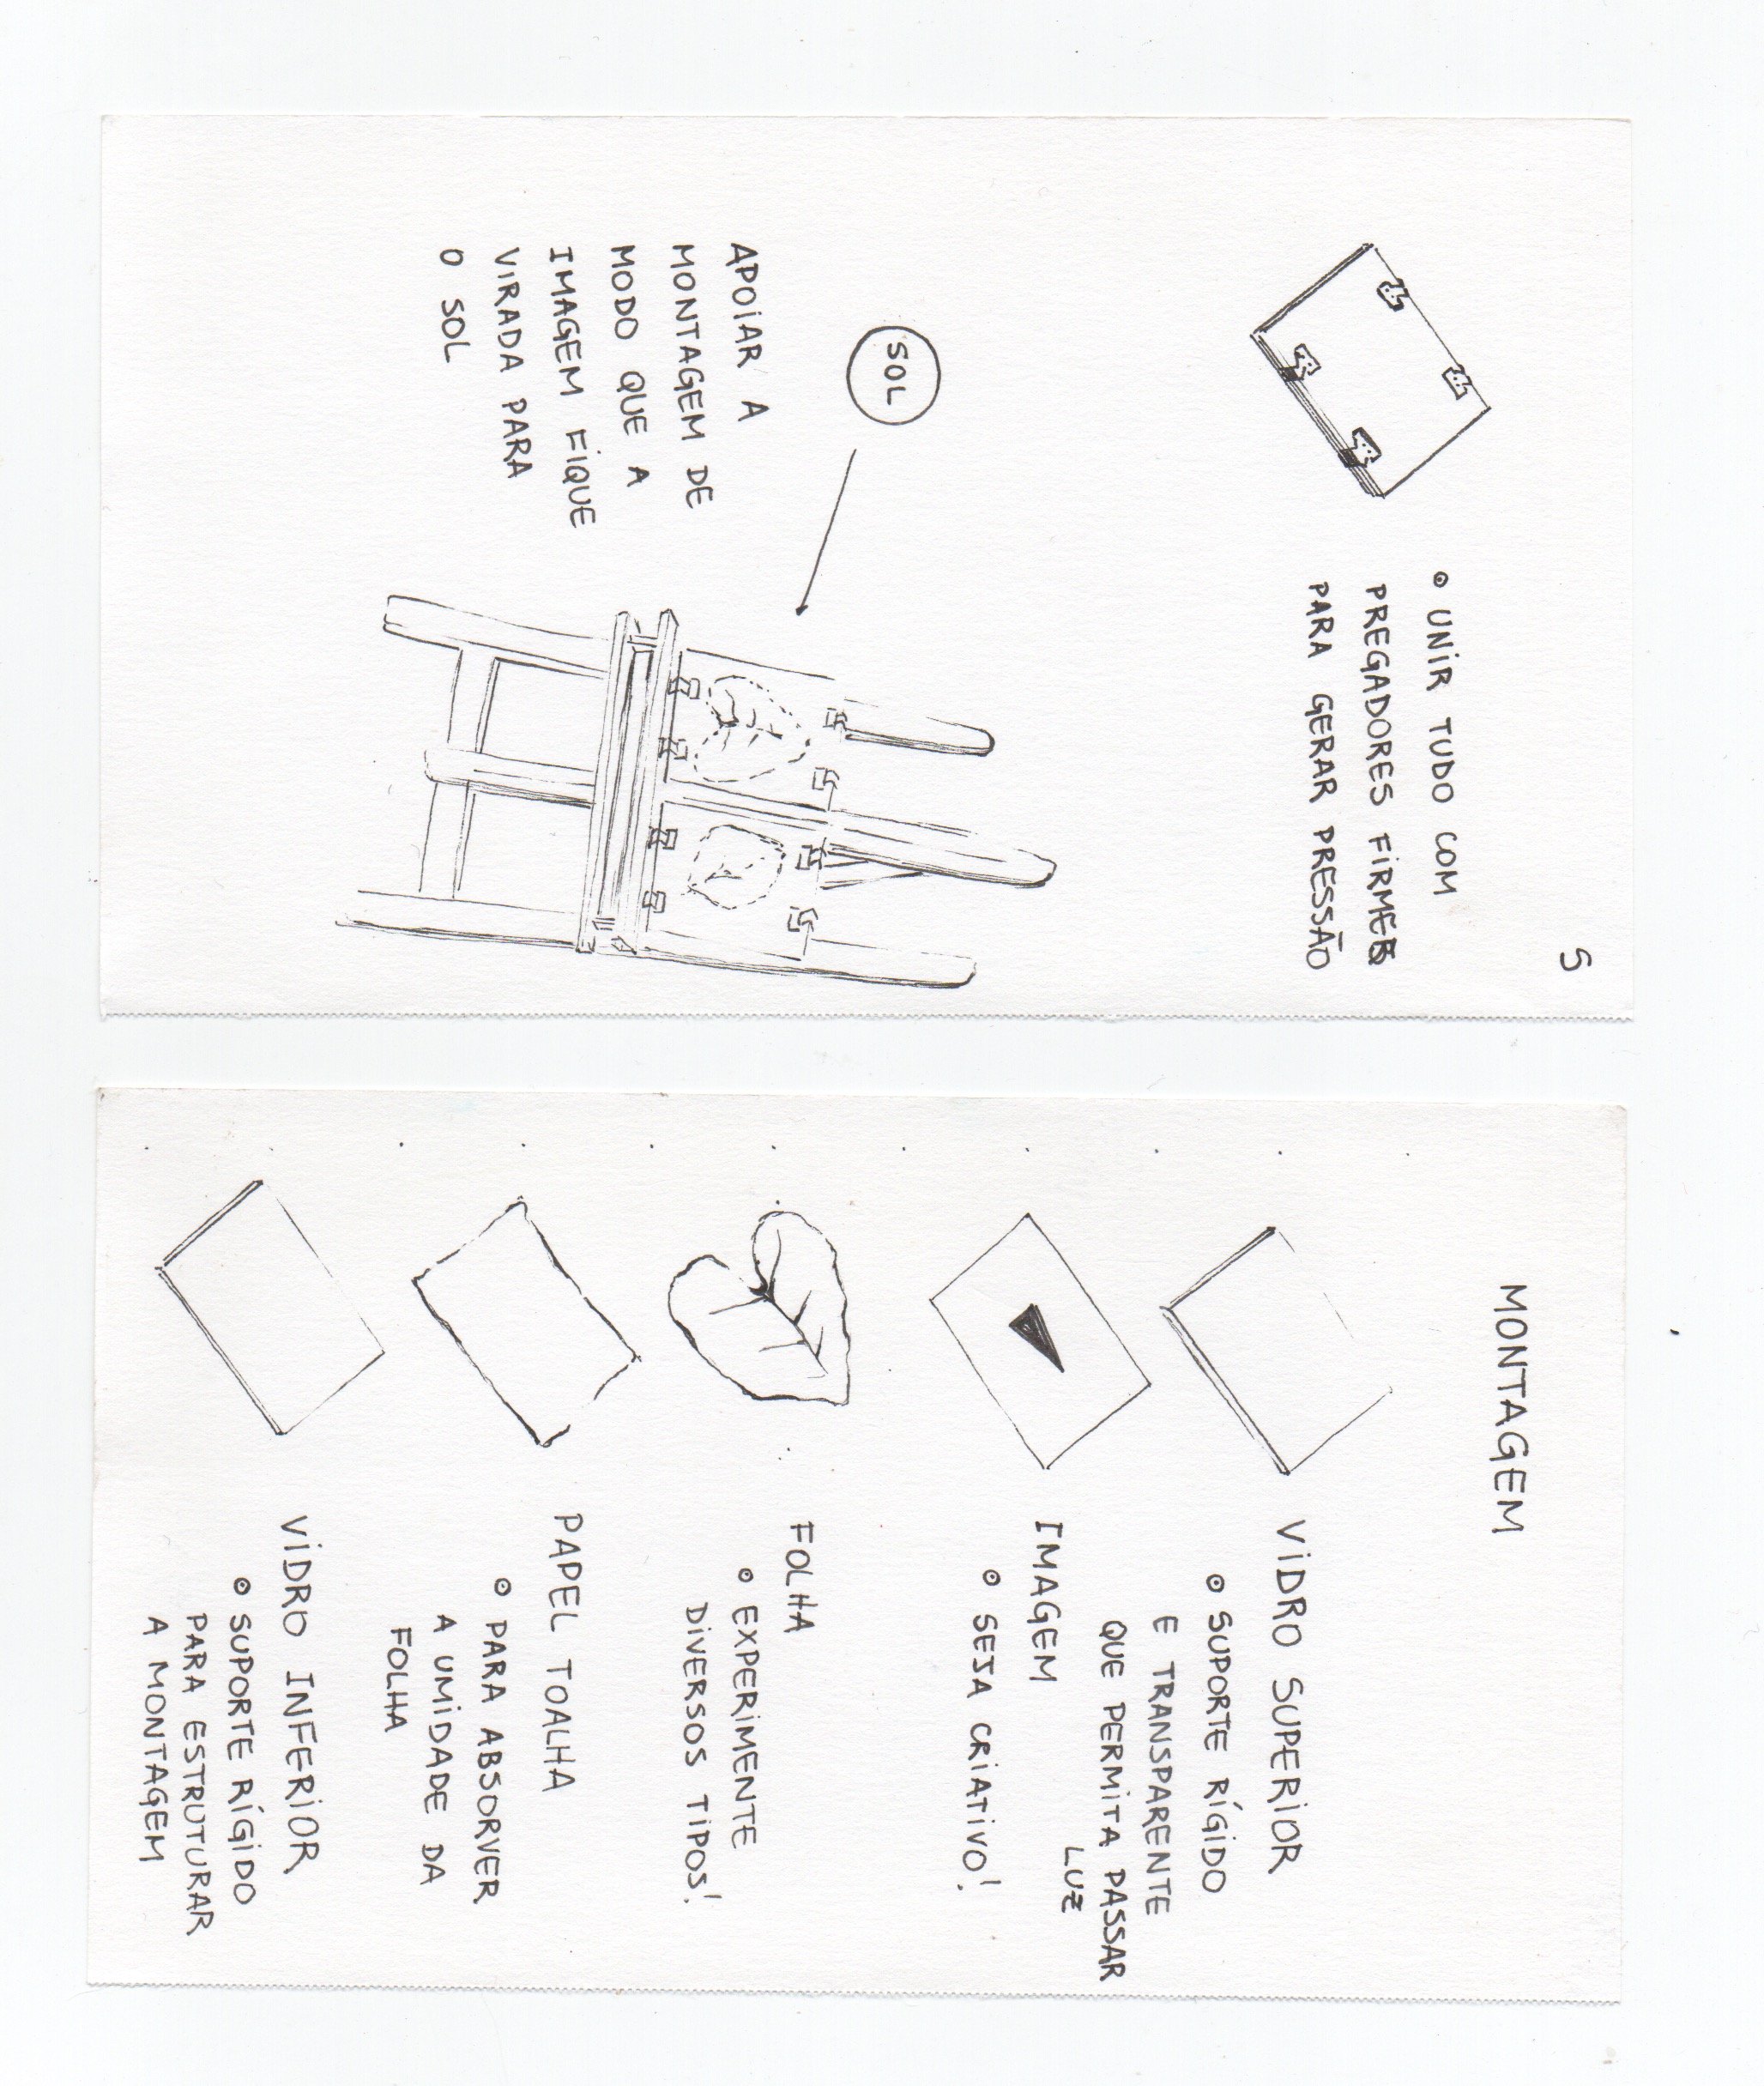 5
• UNIR TUDO COM
PREGADORES FIRMES
PARA GERAR PRESSÃO
SOL
APOIAR A
MONTAGEM DE
MODO QUE A
IMAGEM FIQUE
VIRADA PARA
O SOL
MONTAGEM
VIDRO SUPERIOR
• SUPORTE RÍGIDO
E TRANSPARENTE
QUE PERMITA PASSAR
LUZ
IMAGEM
• SEJA CRIATIVO!
FOLHA
• EXPERIMENTE
DIVERSOS TIPOS!
PAPEL TOALHA
• PARA ABSORVER
A UMIDADE DA
FOLHA
VIDRO INFERIOR
• SUPORTE RÍGIDO
PARA ESTRUTURAR
A MONTAGEM